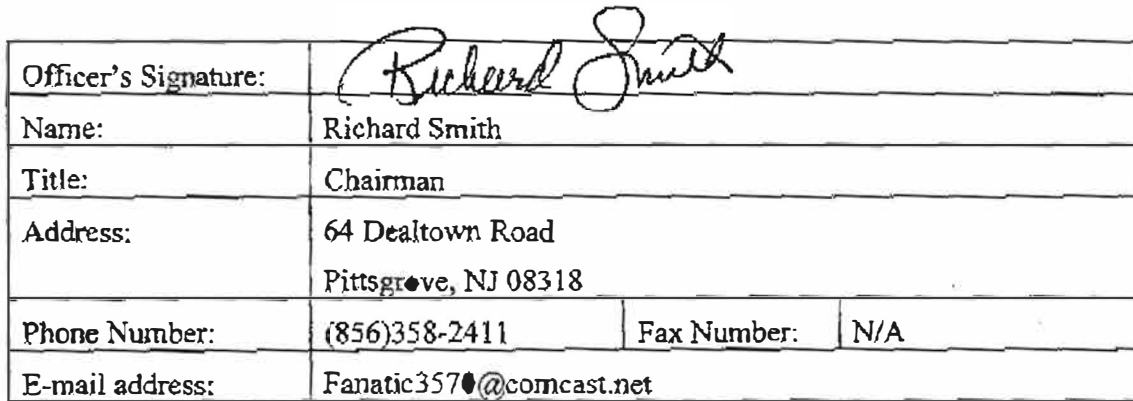 Officer's Signature: Richard Smith
Name: Richard Smith
Title: Chairman
Address: 64 Dealtown Road
Pittsgrove, NJ 08318
Phone Number: (856)358-2411 Fax Number: N/A
E-mail address: